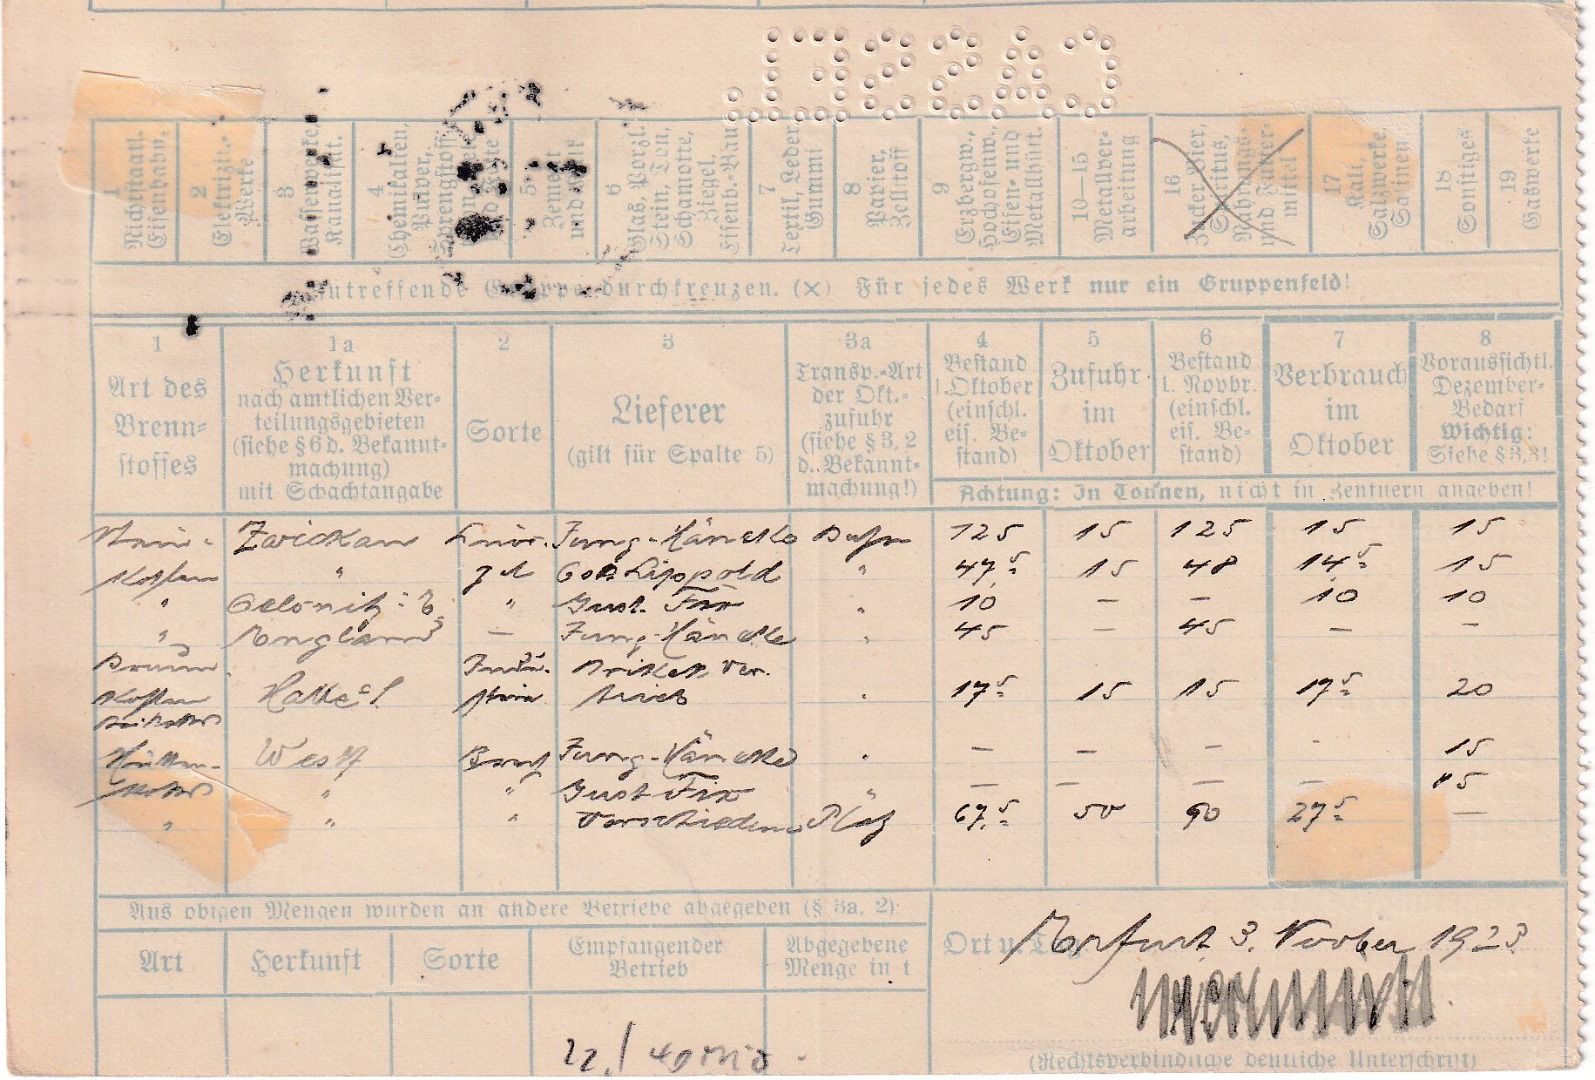 CASSEL
1 Nichtstaatl. Eisenbahn,
2 Elektrizit.-Werke
3 Wasserwerke, Kanalisat.
4 Chemikalien, Pulver, Sprengstoff
5 Zement und
6 Glas, Porzl. Stein, Ton, Schamotte, Ziegel, Eisenb.-Bau
7 Textil, Leder Gummi
8 Papier, Zellstoff
9 Erzbergw., Hochofenw., Eisen- und Metallhütt.
10—15 Metallver-arbeitung
16 Zucker, Bier, Spiritus, Nahrungs- und Futter-mittel
17 Kali, Salzwerke, Salinen
18 Sonstiges
19 Gaswerke
Zutreffende Gruppe durchkreuzen. (×) Für jedes Werk nur ein Gruppenfeld!
1 Art des Brenn-stoffes
1a Herkunft nach amtlichen Ver-teilungsgebieten (siehe § 6 d. Bekannt-machung) mit Schachtangabe
2 Sorte
3 Lieferer (gilt für Spalte 5)
3a Transp.-Art der Okt.-zufuhr (siehe § 3, 2 d. Bekannt-machung!)
4 Bestand 1. Oktober (einschl. eis. Be-stand)
5 Zufuhr im Oktober
6 Bestand 1. Novbr. (einschl. eis. Be-stand)
7 Verbrauch im Oktober
8 Voraussichtl. Dezember-Bedarf Wichtig: Siehe § 3,3!
Achtung: In Tonnen, nicht in Zentnern angeben!
Stein- Zwickau Jung-Händle Bahn 125 15 125 15 15
Kohlen " Lippold " 47,5 15 48 14,5 15
" Oelsnitz i. E. " Gust. Fix " 10 — — 10 10
" England — Jung-Händle " 45 — 45 — —
Braun- Indu- Brikett Ver-
Kohlen Halle S. strie trieb " 17,5 15 15 17,5 20
Briketts
Hütten- Westf Jung-Händle " — — — - 15
Koks " " Gust Fix " — — — — "5
" " " Verschiedene Platz 67,5 50 90 27,5 —
Aus obigen Mengen wurden an andere Betriebe abgegeben (§ 3a, 2):
Art Herkunft Sorte Empfangender Betrieb Abgegebene Menge in t
Ort u. Erfurt 3. Novber 1923
(Rechtsverbindliche deutliche Unterschrift)